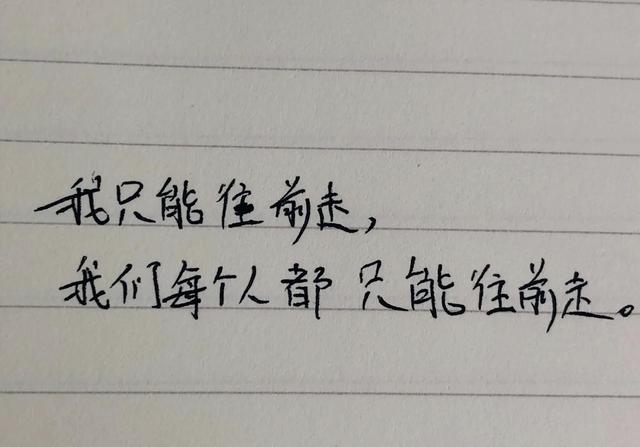 我只能往前走,
我们每个人都只能往前走。